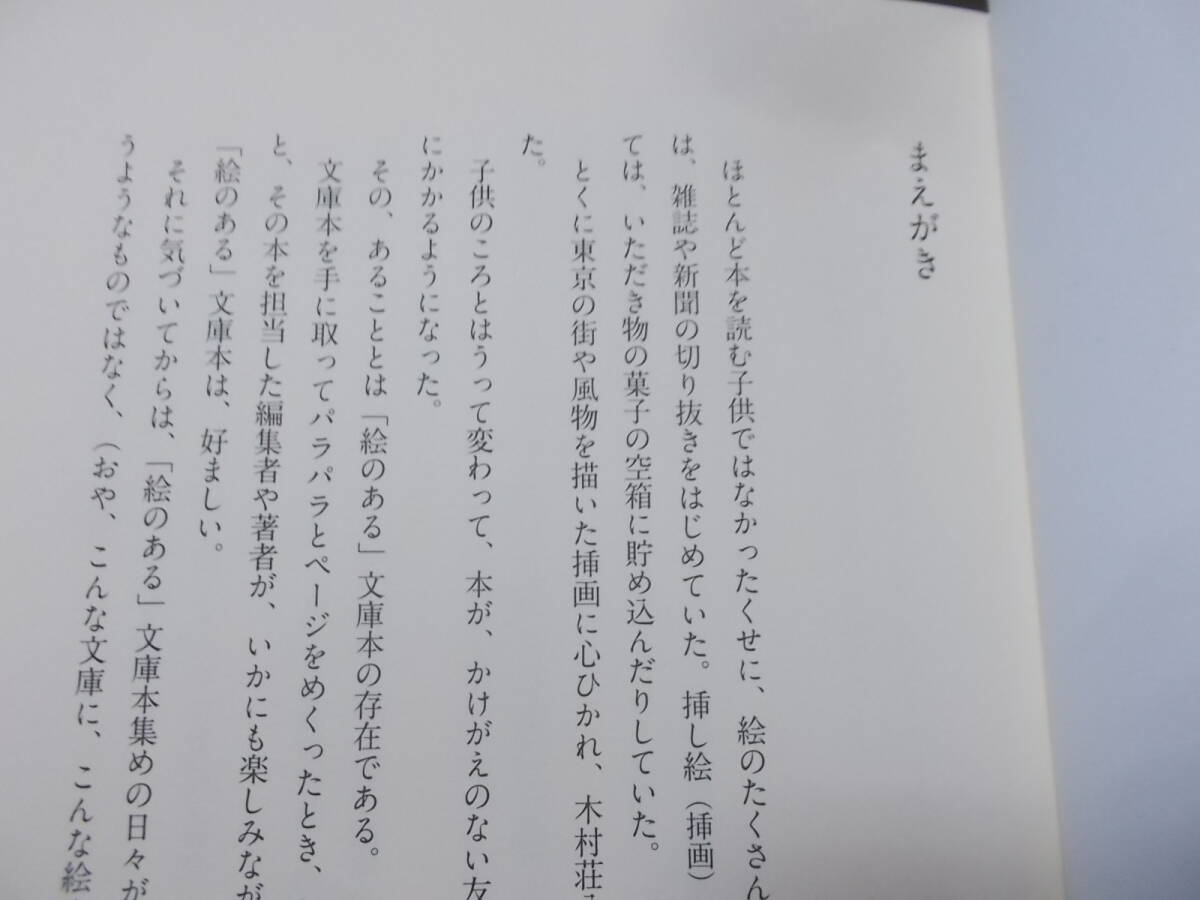 まえがき
ほとんど本を読む子供ではなかったくせに、絵のたくさん
は、雑誌や新聞の切り抜きをはじめていた。挿し絵（挿画）
ては、いただき物の菓子の空箱に貯め込んだりしていた。
とくに東京の街や風物を描いた挿画に心ひかれ、木村荘
た。
子供のころとはうって変わって、本が、かけがえのない友
にかかるようになった。
その、あることとは「絵のある」文庫本の存在である。
文庫本を手に取ってパラパラとページをめくったとき、
と、その本を担当した編集者や著者が、いかにも楽しみなが
「絵のある」文庫本は、好ましい。
それに気づいてからは、「絵のある」文庫本集めの日々が
うようなものではなく、（おや、こんな文庫に、こんな絵